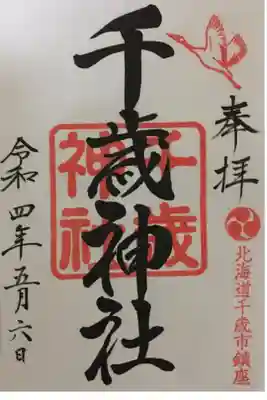 奉拝
北海道千歳市鎮座
千歳神社
千歳
神社
令和四年五月六日